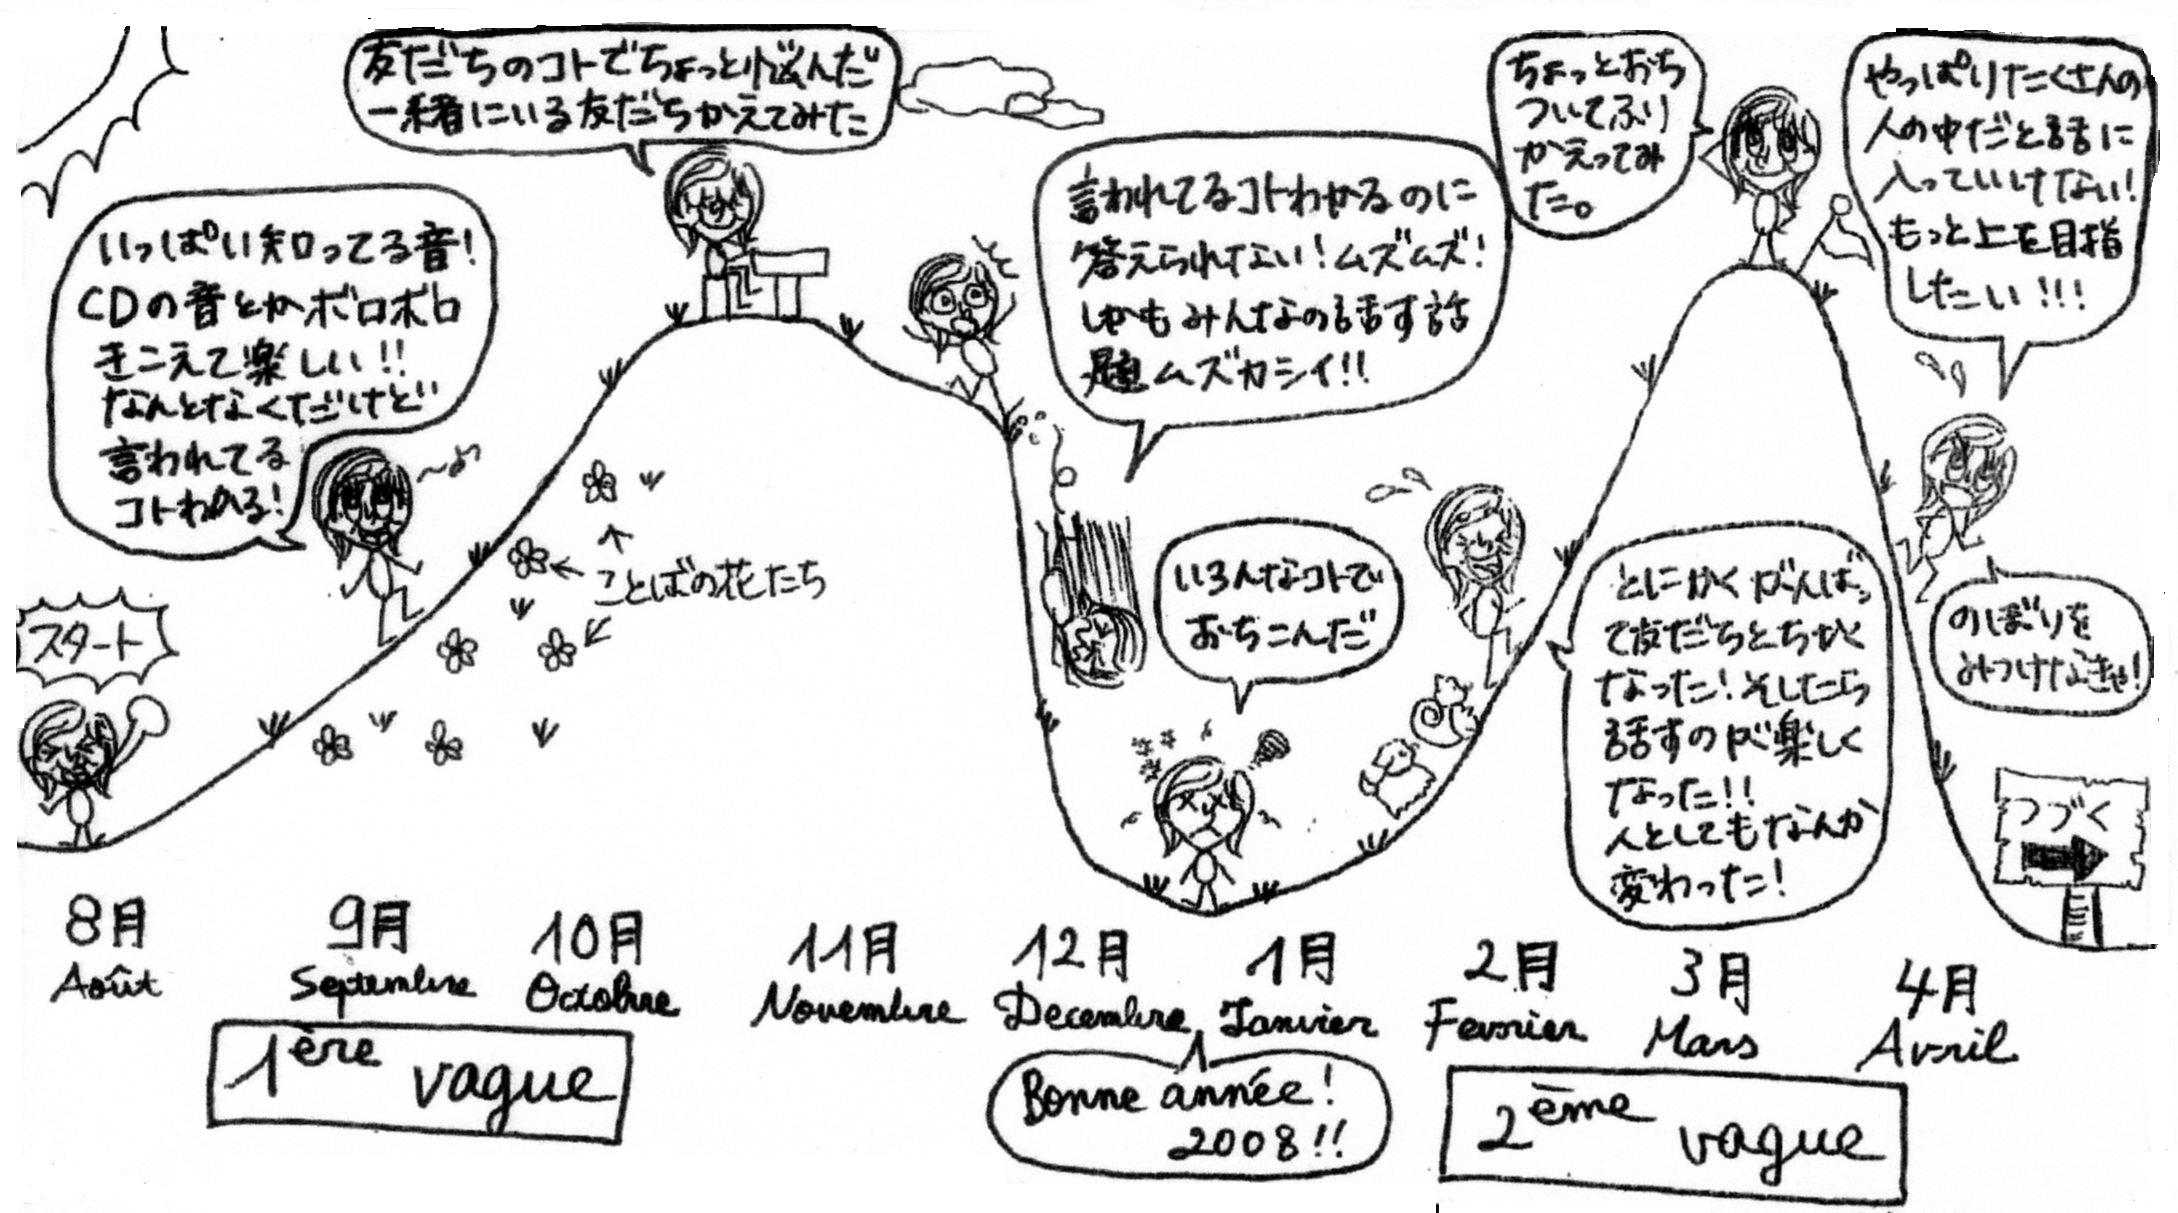 スタート
いっぱい知ってる音!
CDの音とかボロボロ
きこえて楽しい!!
なんとなくだけど
言われてる
コトわかる!
友だちのコトでちょっと悩んだ
一緒にいる友だちかえてみた
ことばの花たち
言われてるコトわかるのに
答えられない!ムズムズ!
しかもみんなの話す話
題ムズカシイ!!
いろんなコトで
おちこんだ
とにかくがんばっ
て友だちとちかく
なった!そしたら
話すのが楽しく
なった!!
人としてもなんか
変わった!
ちょっとおち
ついてふり
かえってみ
た。
やっぱりたくさんの
人の中だと話に
入っていけない!
もっと上を目指
したい!!!
のぼりを
みつけなきゃ!
つづく
8月
Août
9月
Septembre
10月
Octobre
11月
Novembre
12月
Decembre
1月
Janvier
2月
Fevrier
3月
Mars
4月
Avril
1ère vague
Bonne année!
2008!!
2ème vague